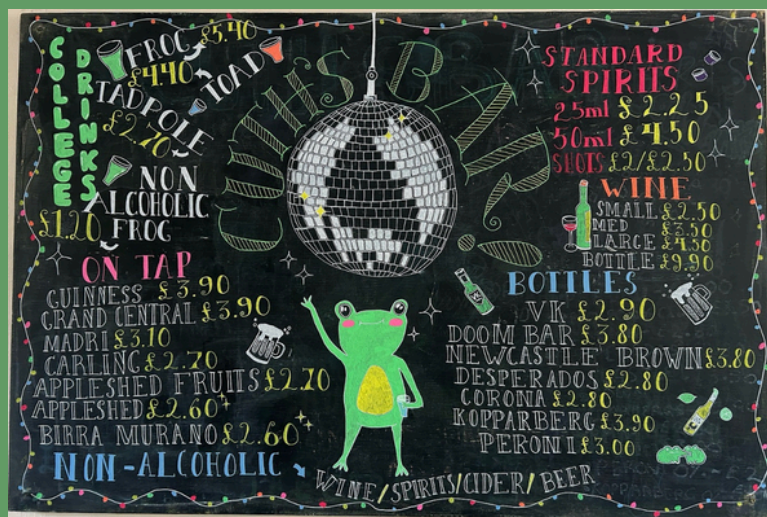 COLLEGE DRINKS
FROG £5.40
£4.40 TOAD
TADPOLE
£2.70
NON
ALCOHOLIC
£1.20 FROG
ON TAP
GUINNESS £3.90
GRAND CENTRAL £3.90
MADRI £3.10
CARLING £2.70
APPLESHED FRUITS £2.70
APPLESHED £2.60
BIRRA MURANO £2.60
NON-ALCOHOLIC
WINE/SPIRITS/CIDER/BEER
CUTHS BAR!
STANDARD
SPIRITS
25ml £2.25
50ml £4.50
SHOTS £2/£2.50
WINE
SMALL £2.50
MED £3.50
LARGE £4.50
BOTTLE £9.90
BOTTLES
VK £2.90
DOOM BAR £3.80
NEWCASTLE BROWN £3.80
DESPERADOS £2.80
CORONA £2.80
KOPPARBERG £3.90
PERONI £3.00